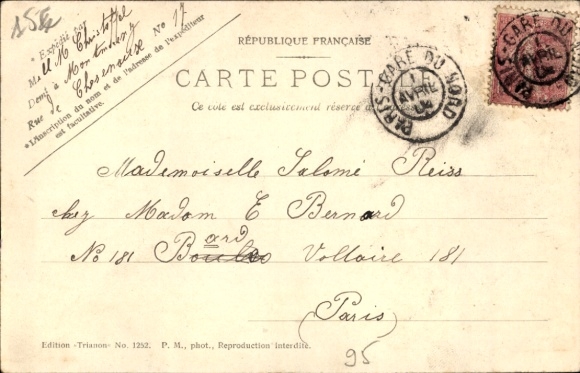 15E
* Expédié par
M. M Christoffel
Demt à Montmorency
Rue de No 17
*L'inscription du nom et de l'adresse de l'expéditeur
est facultative.
RÉPUBLIQUE FRANÇAISE
CARTE POSTALE
Ce côté est exclusivement réservé à
PARIS - GARE DU NORD
AVRIL
04
PARIS - GARE DU
AVRIL
04
Mademoiselle Salomé Reiss
chez Madam E Bernard
No 181 Bard Voltaire 181
Paris
95
Edition «Trianon» No. 1252. P. M., phot., Reproduction interdite.